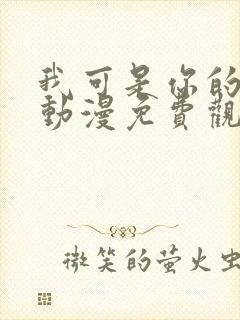 我可是你的
動漫免費觀
微笑的萤火虫